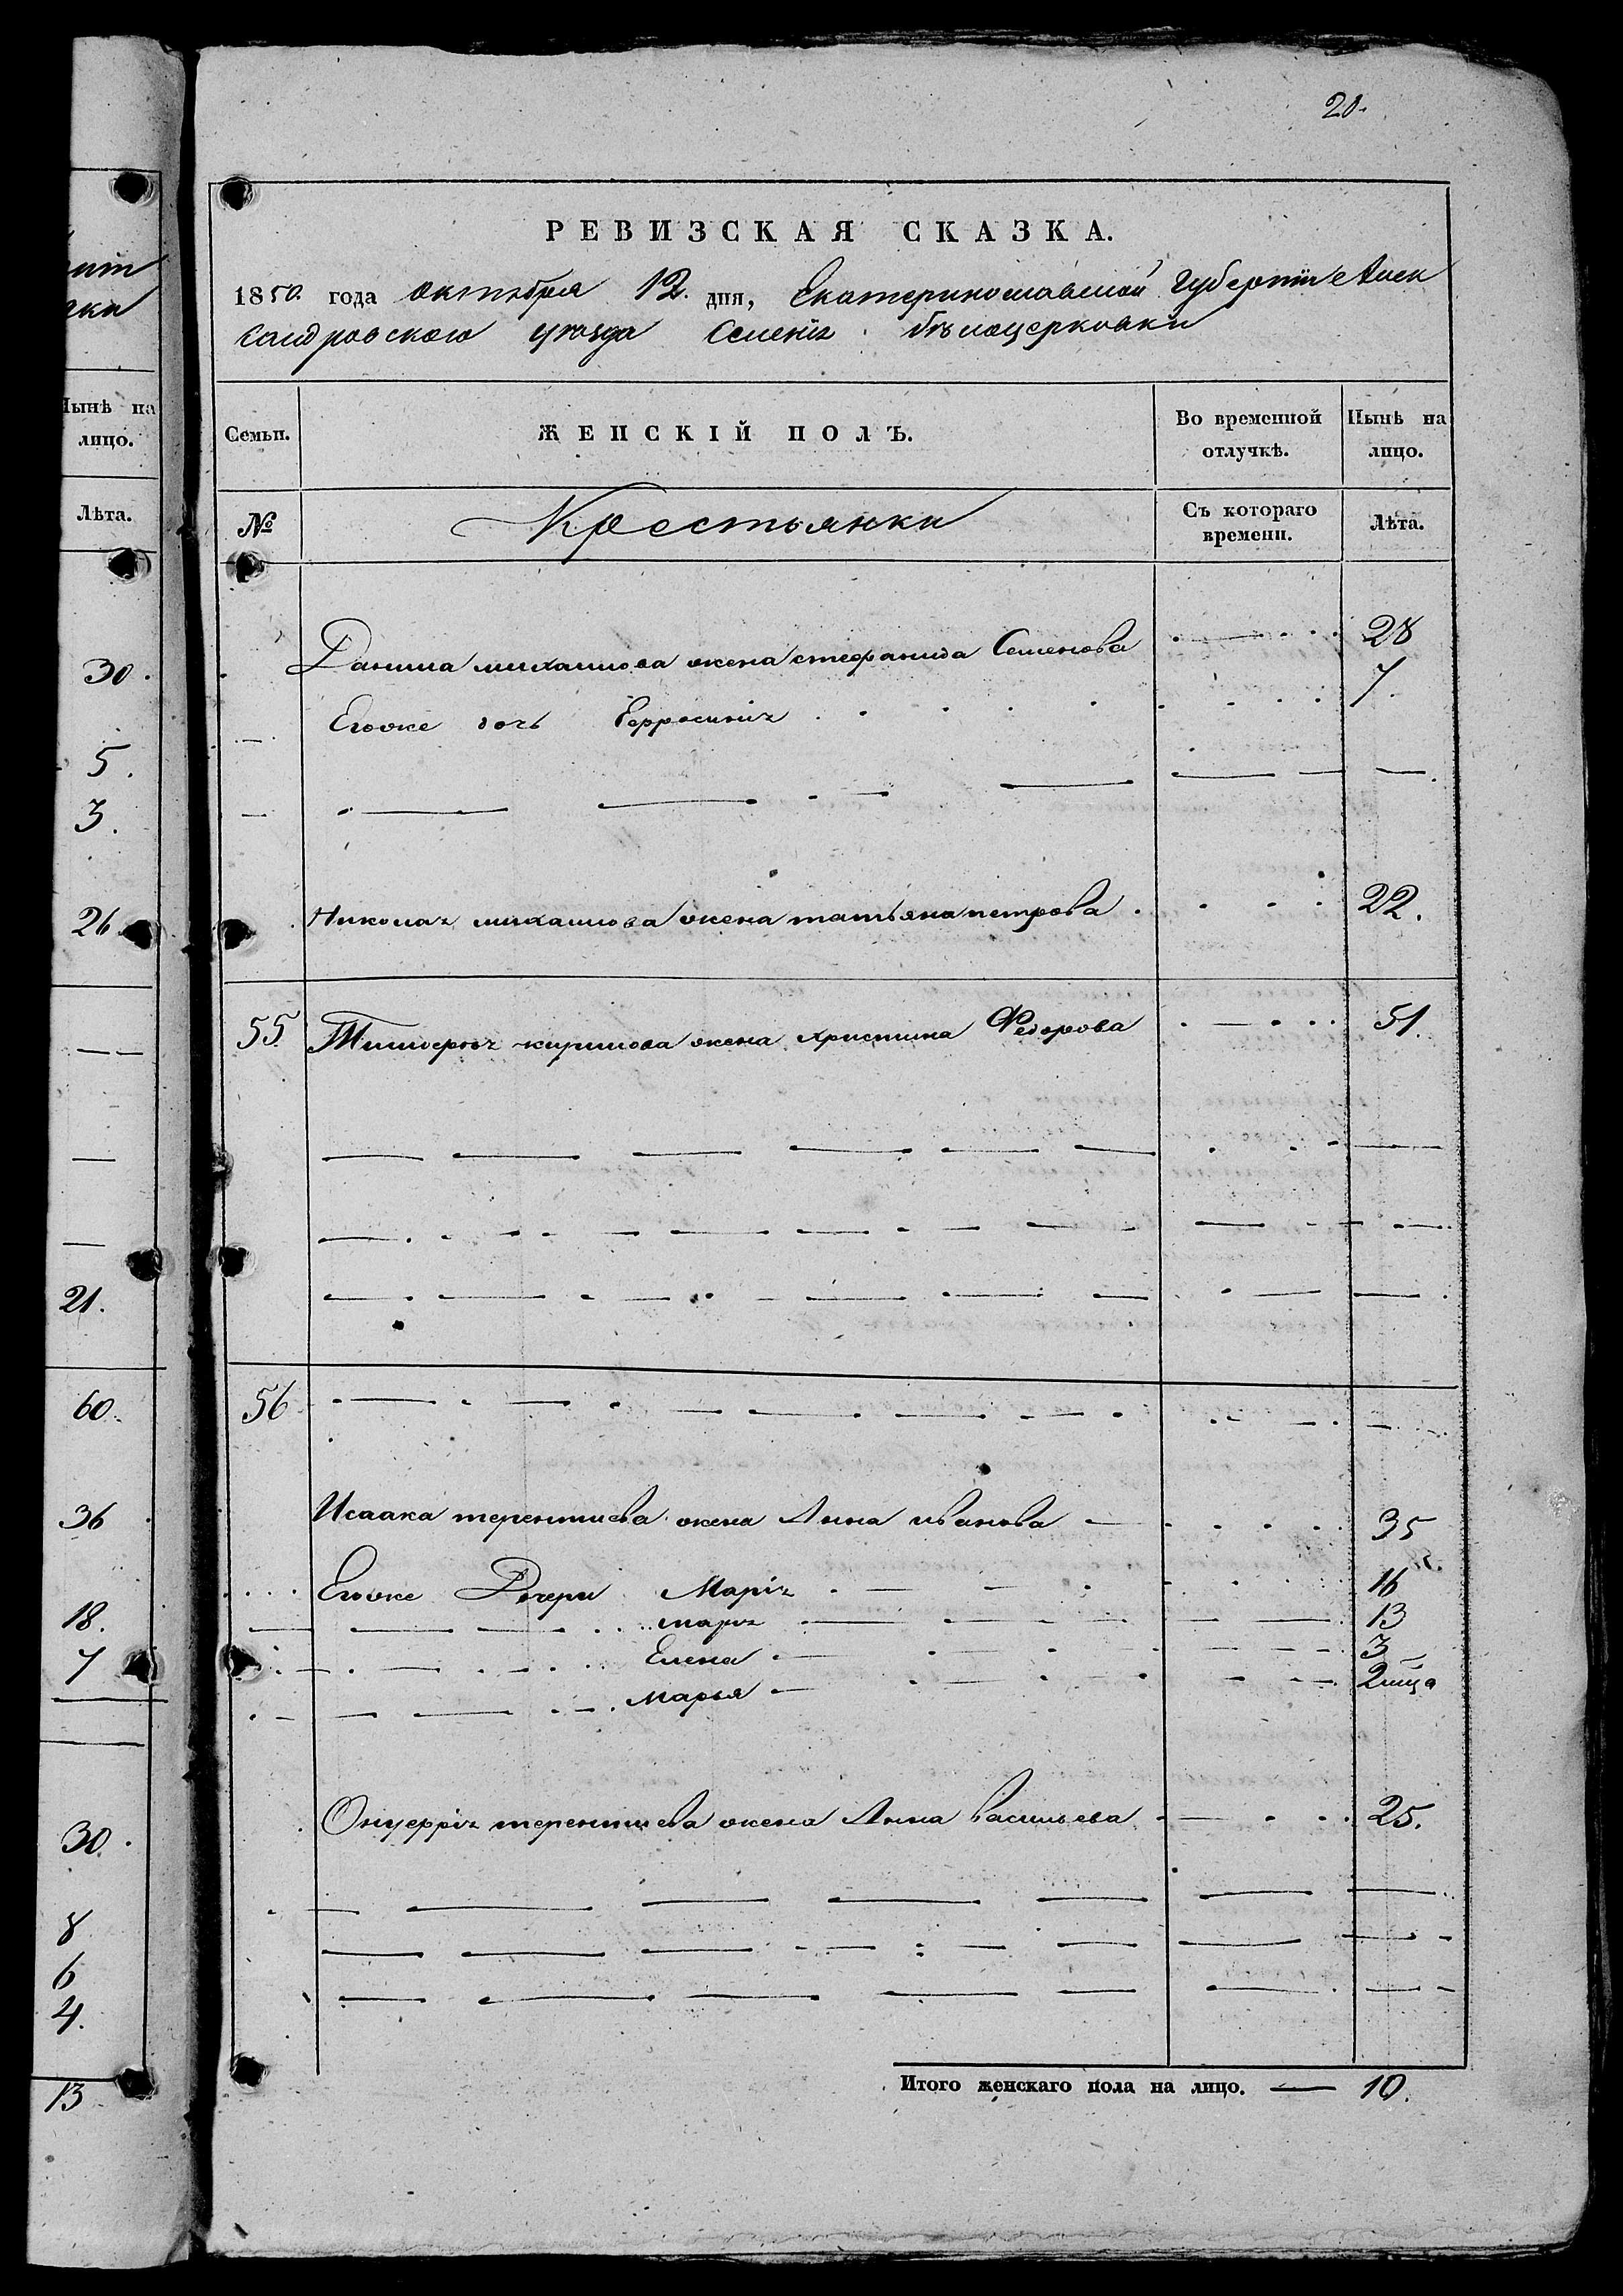 20.
РЕВИЗСКАЯ СКАЗКА.
1850. года октября 12. дня, Екатеринославской Губерніи Алек
сандровскаго уѣзда Селенія бѣлоцерковки
Семьи. ЖЕНСКІЙ ПОЛЪ. Во временной отлучкѣ. Нынѣ на лицо.
№ Крестьянки Съ котораго времени. Лѣта.
Данила михаилова жена стефанида Семенова 28
Егоже дочь Ефросинія 7.
Николая михаилова жена татьяна петрова 22.
55 Тимоѳея кирилова жена христина Федорова 51.
56
Исаака терентиева жена Анна иванова 35
Егоже Дочери Марія 16
марія 13
Елена 3
Марья 2
Онуфрія терентиева жена Анна васильева 25.
Итого женскаго пола на лицо. 10.
Нынѣ на
лицо.
Лѣта.
30.
5.
3.
26
21.
60.
36
18.
7
30.
8
6
4.
13